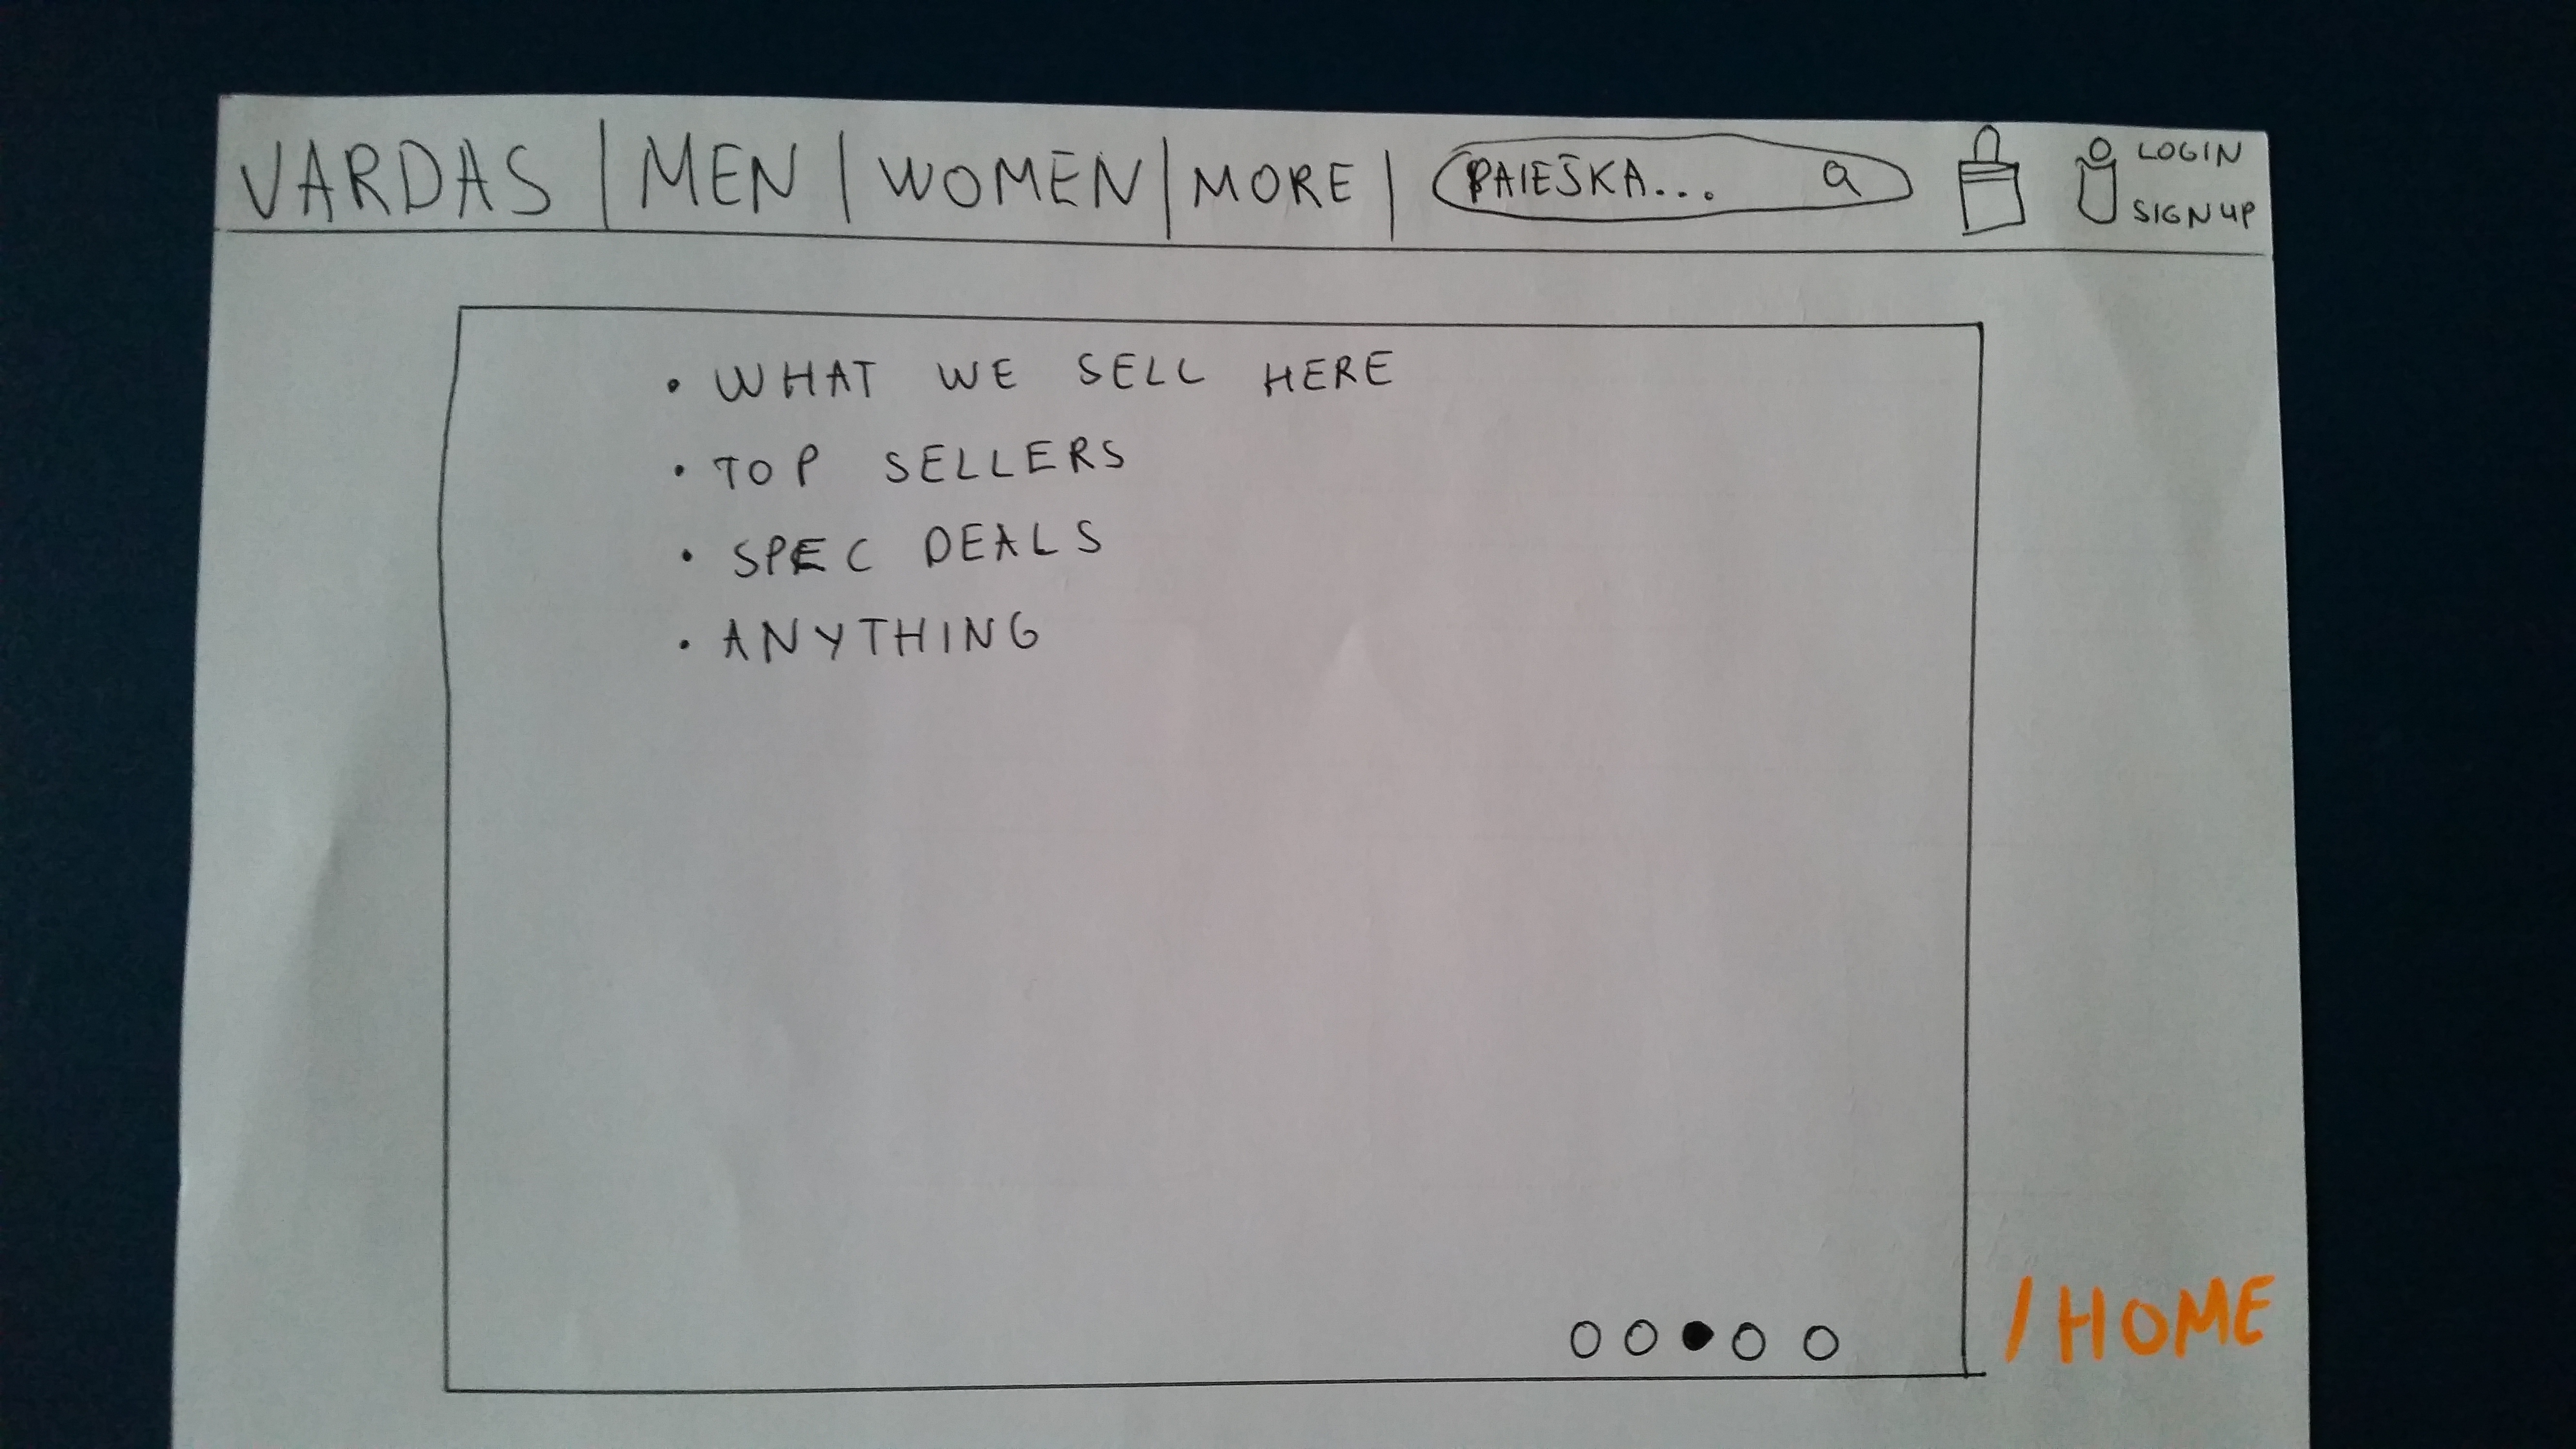 VARDAS | MEN | WOMEN | MORE | PAIEŠKA...
LOGIN
SIGN UP
• WHAT WE SELL HERE
• TOP SELLERS
• SPEC DEALS
• ANYTHING
/HOME